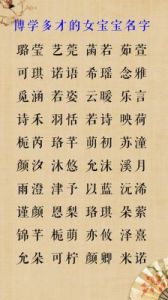 博学多才的女宝宝名字
璐莹 艺莞 菡若 茹萱
可琪 诺语 希瑶 念雅
觅涵 若姿 云暖 乐荷
诗禾 羽恬 若茵 映言
栀芮 珞芊 萌初 苏诗
颜汐 沐悠 允沫 溪月
雨澄 津予 以蓝 沅浠
谨颜 恩梨 珞颐 朵萦
锦芊 栀萌 亦攸 泽熹
允朵 可柠 颜卿 米诺